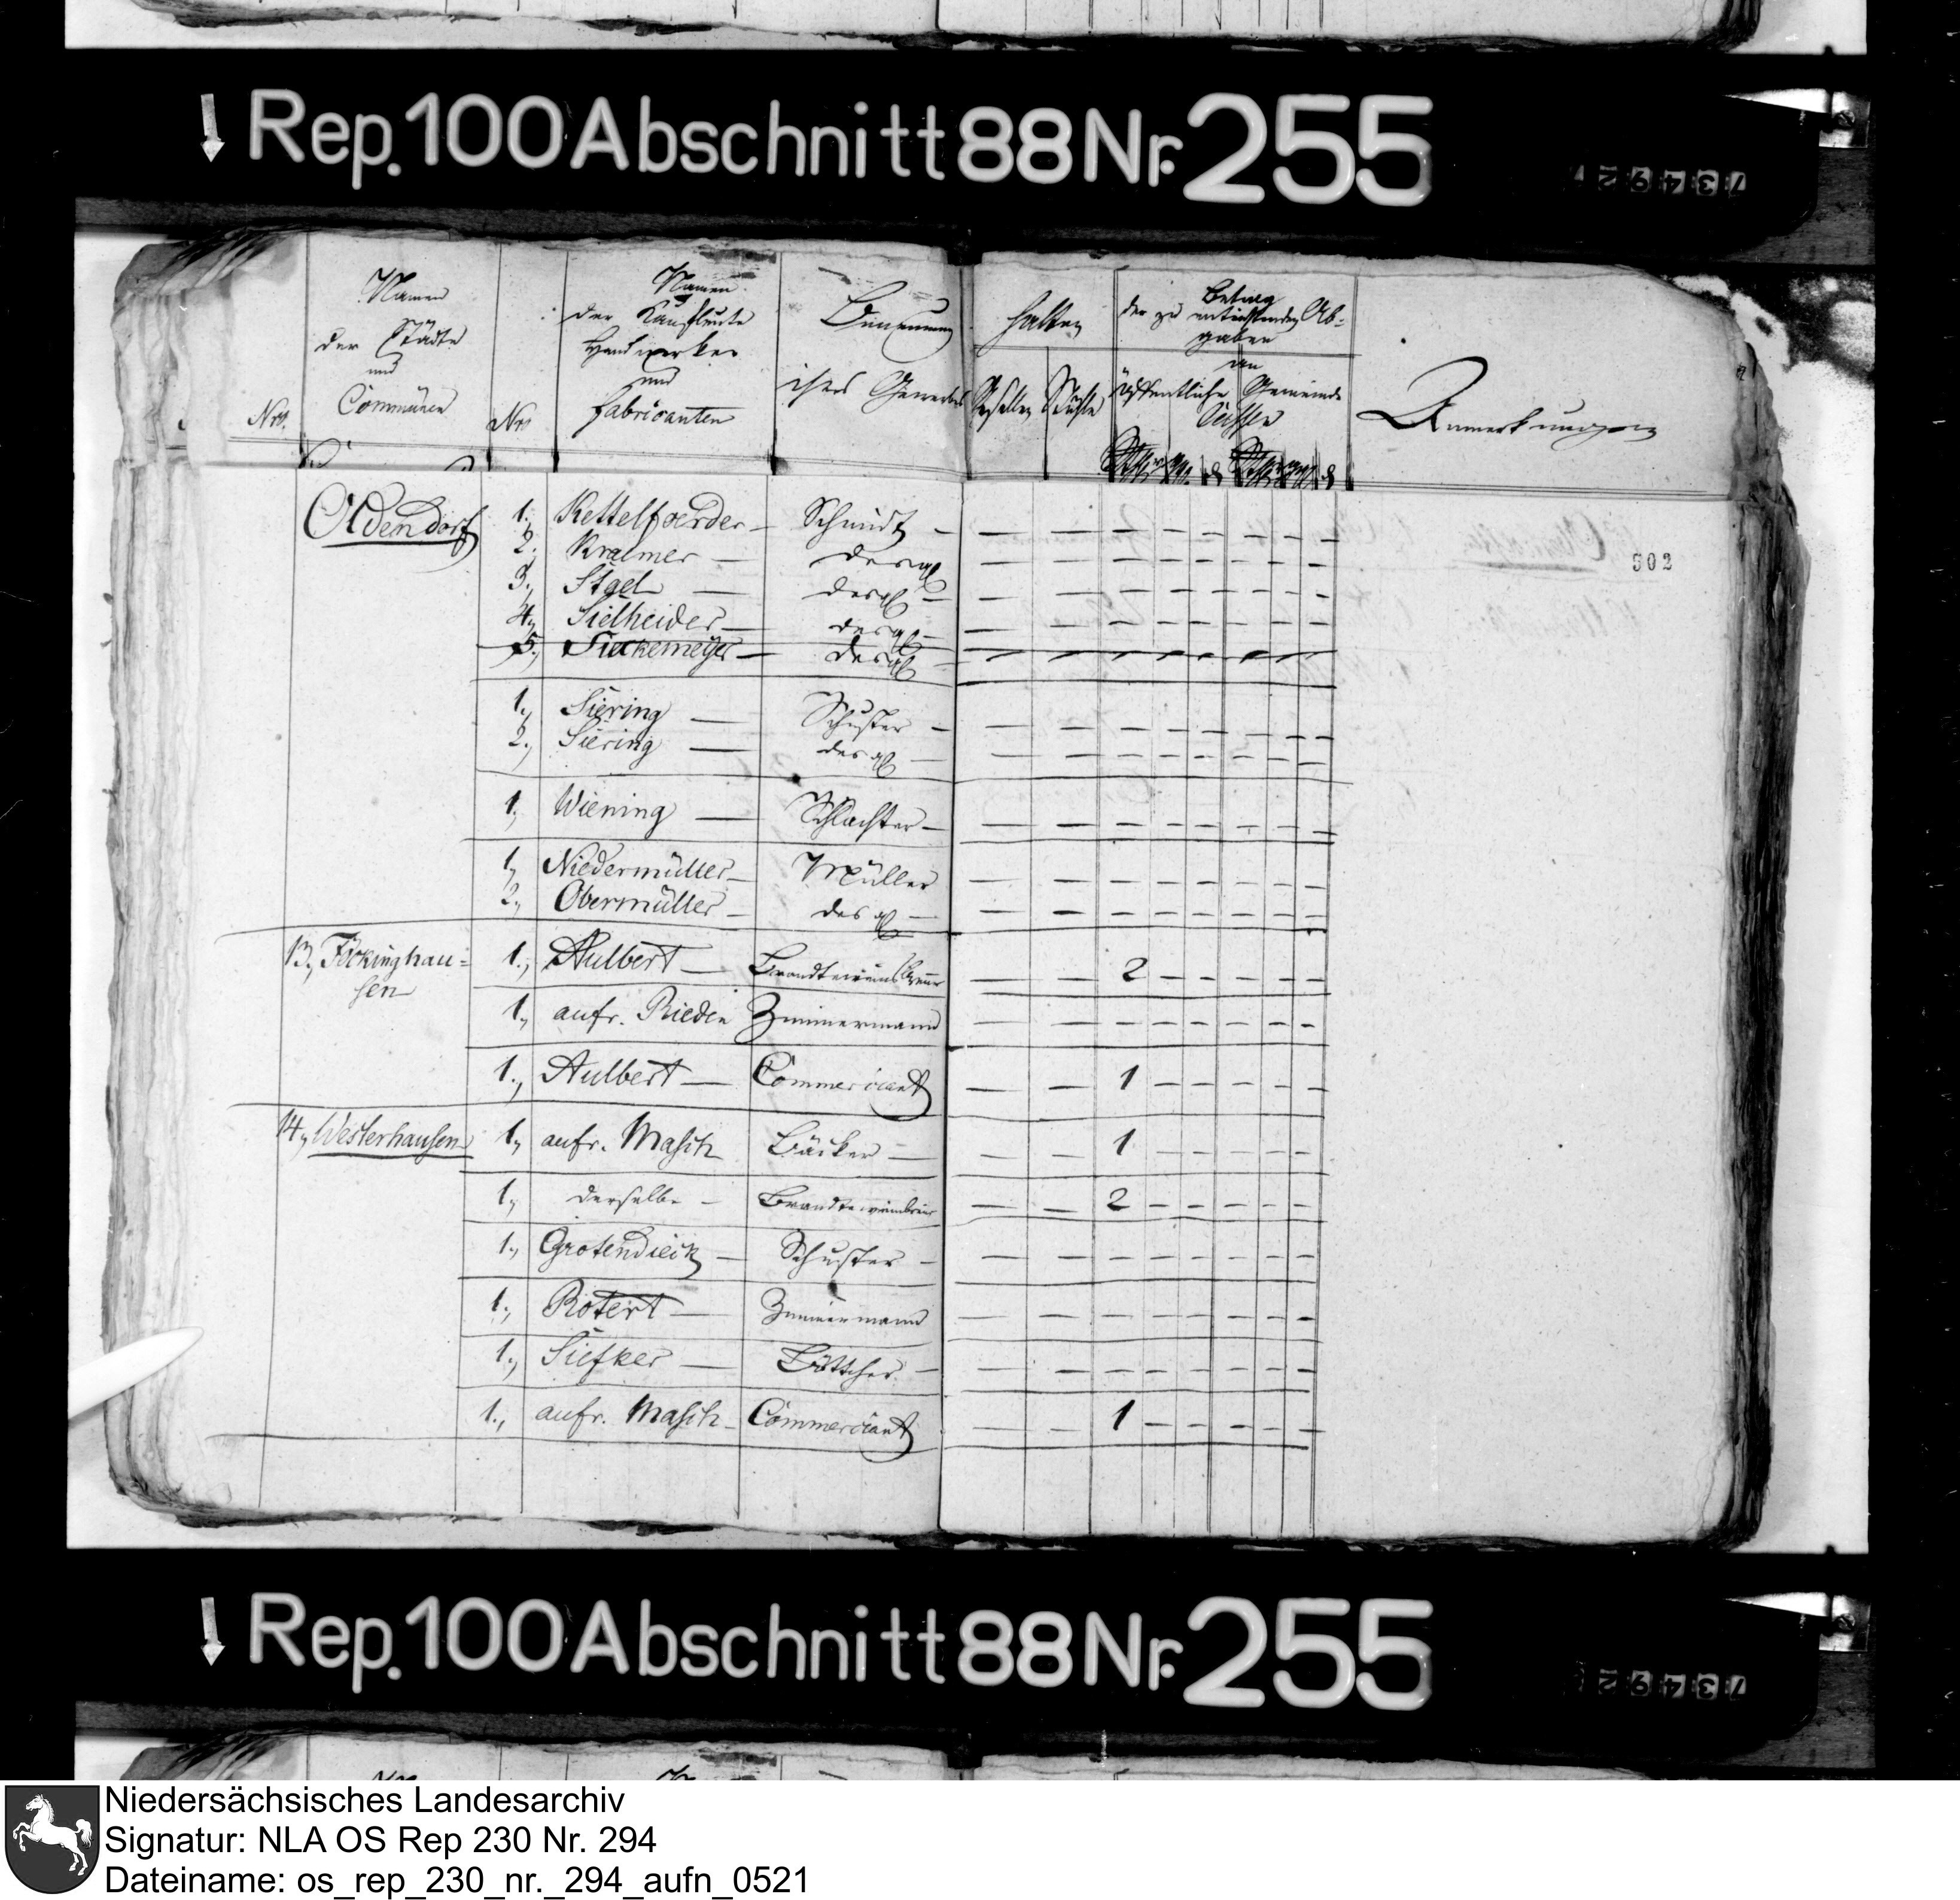 Rep. 100 Abschnitt 88 Nr. 255
734927
Nro.
Namen
der Städte
und
Communen
Nro
Namen
der Kaufleute
Handwerker
und
Fabricanten
Benennung
ihres Gewerbes
halten
Gesellen
Stühle
Betrag
der zu entrichtenden Ab-
gaben
an
öffentliche Gemeinde
Cassen
Anmerkungen
502
Oldendorf 1., Kettelfoerder — Schmidt — — — — — — — — —
2., Kralmer — desgl — — — — — — — —
3., Stael — desgl — — — — — — — — —
4., Sielheider — desgl — — — — — — — — —
5., Sieckemeÿer — desgl — — — — — — — — —
1., Siering — Schuster — — — — — — — — —
2., Siering — desgl — — — — — — — — —
1., Wiening — Schlachter — — — — — — — — —
1., Niedermüller — Müller — — — — — — — —
2., Obermüller — desgl — — — — — — — — —
13., Föckinghau=
sen
1., Aulbert — Brandteweinsbrenner — — 2 — — — — —
1., aufr. Rieden Zimmermann — — — — — — — —
1., Aulbert — Commerciant — — 1 — — — — —
14., Westerhausen 1., aufr. Masch Bäcker — — — 1 — — — — —
1., derselbe — Brandteweinbrenner — — 2 — — — — —
1., Grotendieck — Schuster — — — — — — — — —
1., Rotert — Zimmermann — — — — — — — —
1., Siefker — Böttcher — — — — — — — — —
1., aufr. Masch — Commerciant — — 1 — — — — —
Rep. 100 Abschnitt 88 Nr. 255
734927
Niedersächsisches Landesarchiv
Signatur: NLA OS Rep 230 Nr. 294
Dateiname: os_rep_230_nr._294_aufn_0521